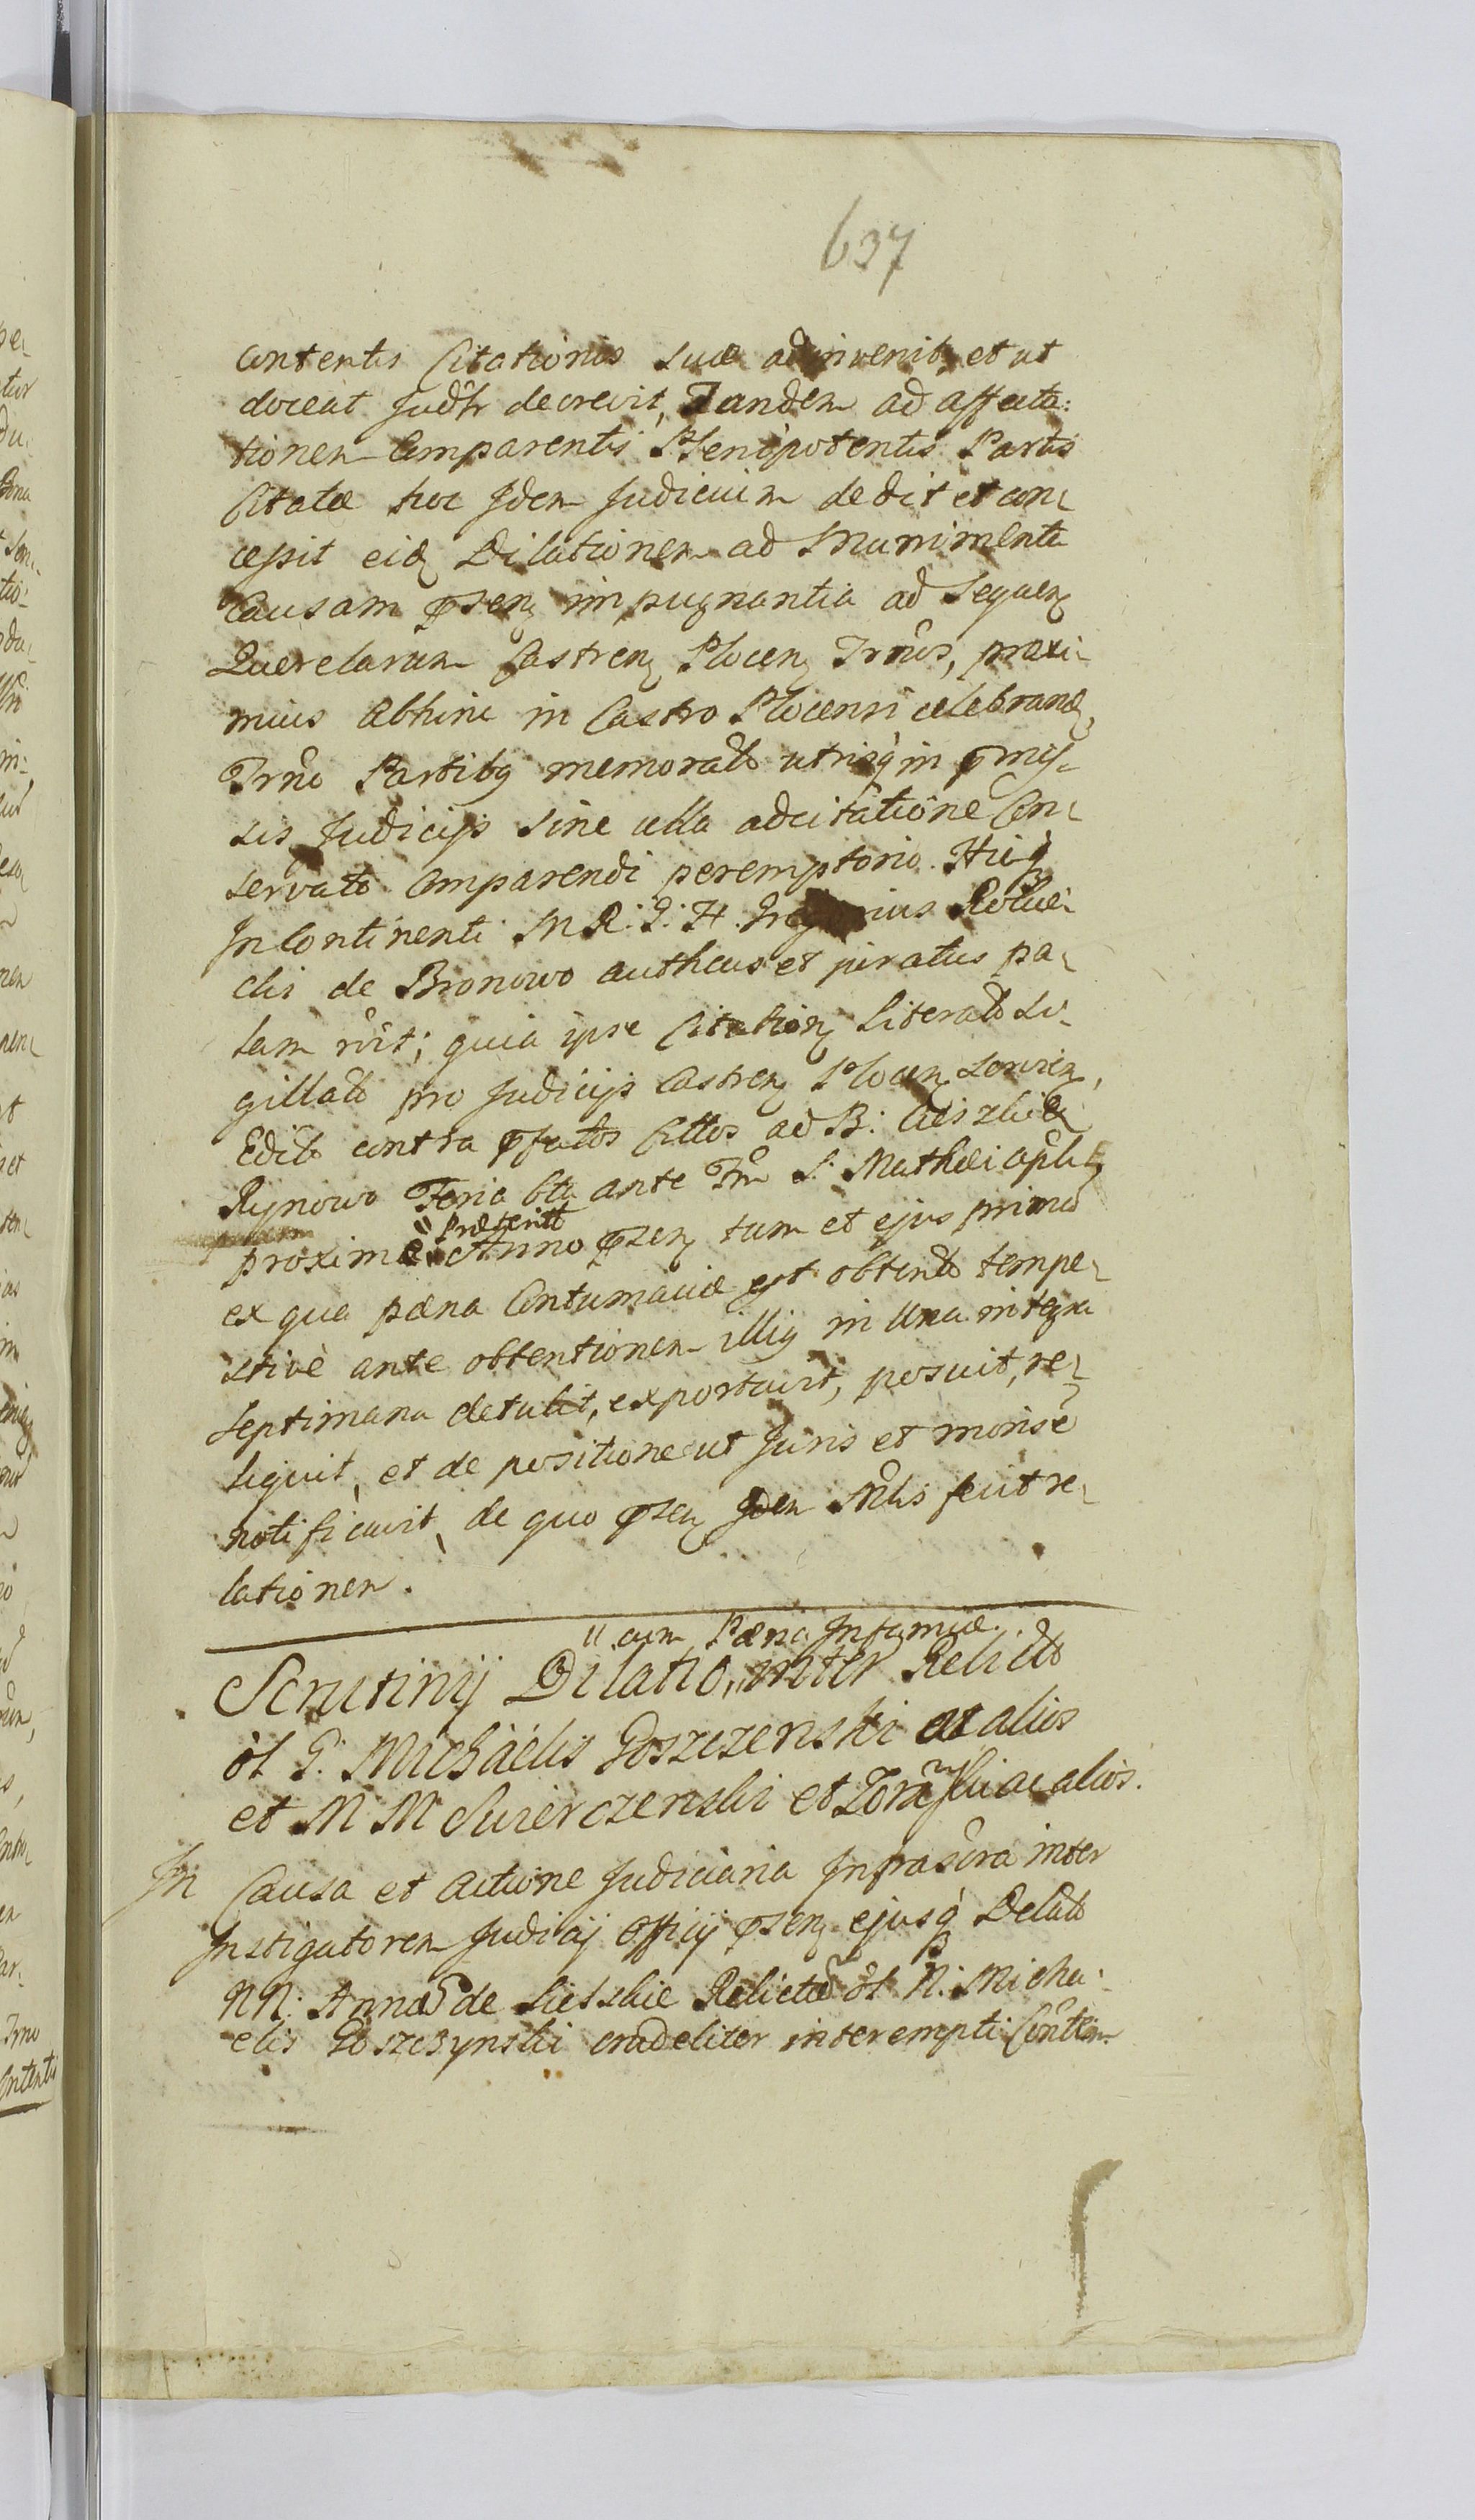 637
contentis Citationis suæ adinvenit, et ut
doceat Judtr decrevit, Tandem ad affecta:
tionem Comparentis Plenipotentis Partis
Citatæ hoc Idem Judicium dedit et con
cessit eidz Dilationem ad Munimenta
Causam pñsenz impugnantia ad sequenz
Querelarum Castrenz Plocenz Trnos, proxi
mius abhinc in Castro Plocensi celebrandz
Trno Partibq memoratt utrisq in pmis
sis Judicijs sine ulla adcitatione Con
servato Comparendi peremptorio. Hicq
Incontinenti M R. G. H. Gregorius
clis de Bronowo authcus et juratus pa
lam rcit; quia ipse Citationz Literatt si
gillatt pro Judicijs Castrenz Plocenz
Editt contra pfatos Cittos ad B:
Rynowo Feria 6ta ante Fm S: Mathæi aplitz
præteritt
proxima Anno pñsenz tum et ejus primo
ex qua pæna Contumaciæ est obtentt tempe
stive ante obtentionem illiq in Una integra
septimana detulit, exportavit, posuit, re
liquit, et de positione ut Juris et moris e
notificavit, de quo pñsenz Idem Mtlis fecit re
lationem.
cum Pæna Infamiæ.
Scrutinij Dilatio, inter Relictt
ol G. Michaelis Goszczenski ac alios
et M M Swierczenski et ac alios.
In Causa et actione Judiciaria Infrascra inter
Instigatorem Judicij Officij pñsenz ejusq Delatt
NN: Annam de Relictam ol N: Micha
elis Goszczynski crudeliter interempti